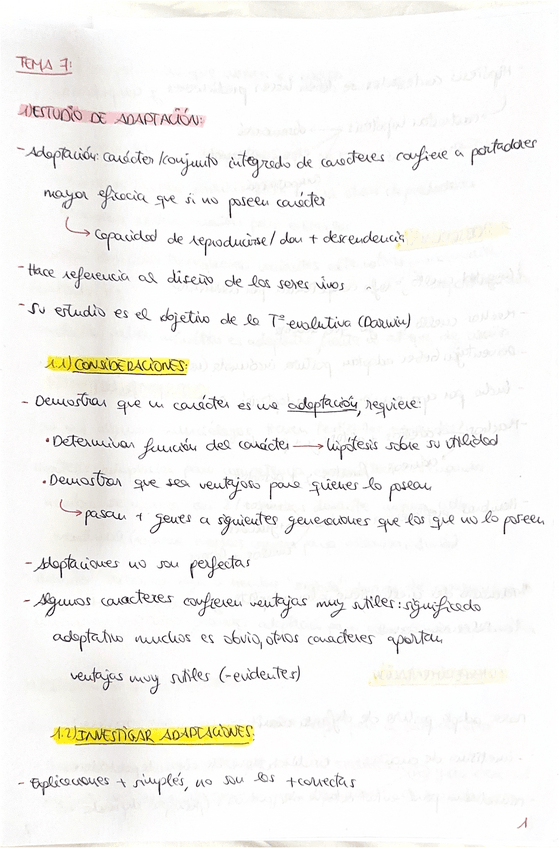 TEMA 7:
1) ESTUDIO DE ADAPTACIÓN:
- Adaptación: carácter/conjunto integrado de caracteres confiere a portadores
mayor eficacia que si no poseen carácter
↳ capacidad de reproducirse/dar + descendencia
- Hace referencia al diseño de los seres vivos
- Su estudio es el objetivo de la Tª evolutiva (Darwin)
1.1) CONSIDERACIONES:
- Demostrar que un carácter es una adaptación, requiere:
• Determinar función del carácter → hipótesis sobre su utilidad
• Demostrar que sea ventajoso para quienes lo posean
↳ pasan + genes a siguientes generaciones que los que no lo poseen
- Adaptaciones no son perfectas
- Algunos caracteres confieren ventajas muy sutiles: significado
adaptativo muchos es obvio, otros caracteres aportan
ventajas muy sutiles (- evidentes)
1.2) INVESTIGAR ADAPTACIONES:
- Explicaciones + simples, no son las + correctas
1